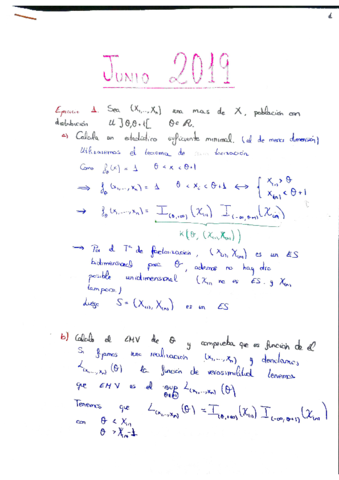 1
JUNIO 2019
Ejercicio 1. Sea (X₁,...,Xₙ) una m.a.s de X, población con
distribución U ]θ, θ+1[ θ ∈ ℝ.
a) Calcula un estadístico suficiente minimal. (el de menor dimensión)
Utilizaremos el teorema de
Como f_θ(x) = 1 θ < x < θ+1
→ f_θ(x₁,...,xₙ) = 1 θ < xᵢ < θ+1 ⟷ { x₍₁₎ > θ
x₍ₙ₎ < θ+1
→ f_θ(x₁,...,xₙ) = I_(θ,∞)(X₍₁₎) I_(-∞,θ+1)(X₍ₙ₎)
h(θ, (X₍₁₎, X₍ₙ₎))
→ Por el Tª de factorización, (X₍₁₎, X₍ₙ₎) es un ES
bidimensional para θ, además no hay otro
posible unidimensional (X₍₁₎ no es ES, y X₍ₙ₎
tampoco)
Luego S = (X₍₁₎, X₍ₙ₎) es un ES
b) Calcula el EMV de θ y comprueba que es función de él
Si fijamos una realización (x₁,...,xₙ) y denotamos
L_(x₁,...,xₙ)(θ) la función de verosimilitud tenemos
que EMV es el sup L_(x₁,...,xₙ)(θ)
Tenemos que L_(x₁,...,xₙ)(θ) = I_(θ,+∞)(X₍₁₎) I_(-∞,θ+1)(X₍ₙ₎)
con θ < X₍₁₎
θ > X₍ₙ₎-1